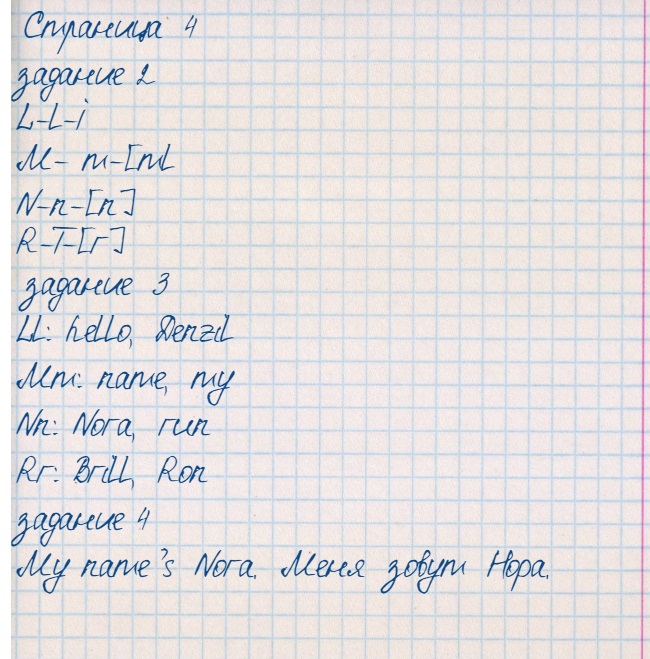 Страница 4
задание 2
L-L-i
M- m-[m[
N-n-[n]
R-T-[r]
задание 3
Ll: hello, Denzil
Mm: name, my
Nn: Nora, run
Rr: Brill, Ron
задание 4
My name's Nora. Меня зовут Нора.